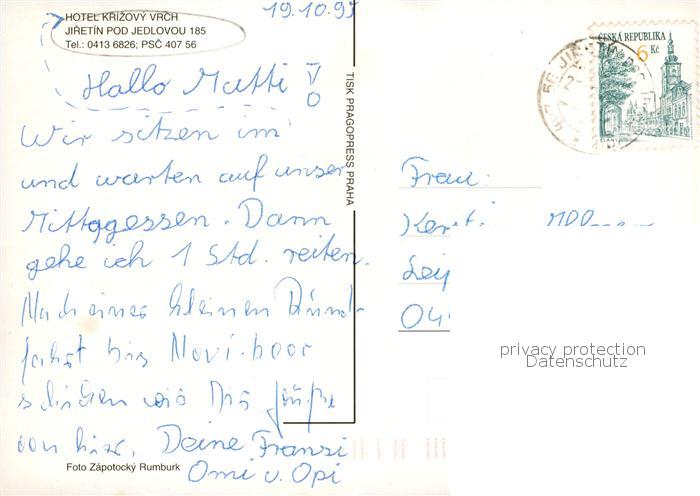 HOTEL KŘÍŽOVÝ VRCH
JIŘETÍN POD JEDLOVOU 185
Tel.: 0413 6826; PSČ 407 56
19.10.95
Hallo Mutti!
Wir sitzen im
und warten auf unser
Mittagessen. Dann
gehe ich 1 Std. reiten.
Nach einer kleinen Rund-
fahrt bis Novi-boor
schicken wir Dir Grüße
von hier. Deine Franzi
Omi u. Opi
Foto Zápotocký Rumburk
TISK PRAGOPRESS PRAHA
ČESKÁ REPUBLIKA
6 Kč
Frau:
Leip
04
privacy protection
Datenschutz